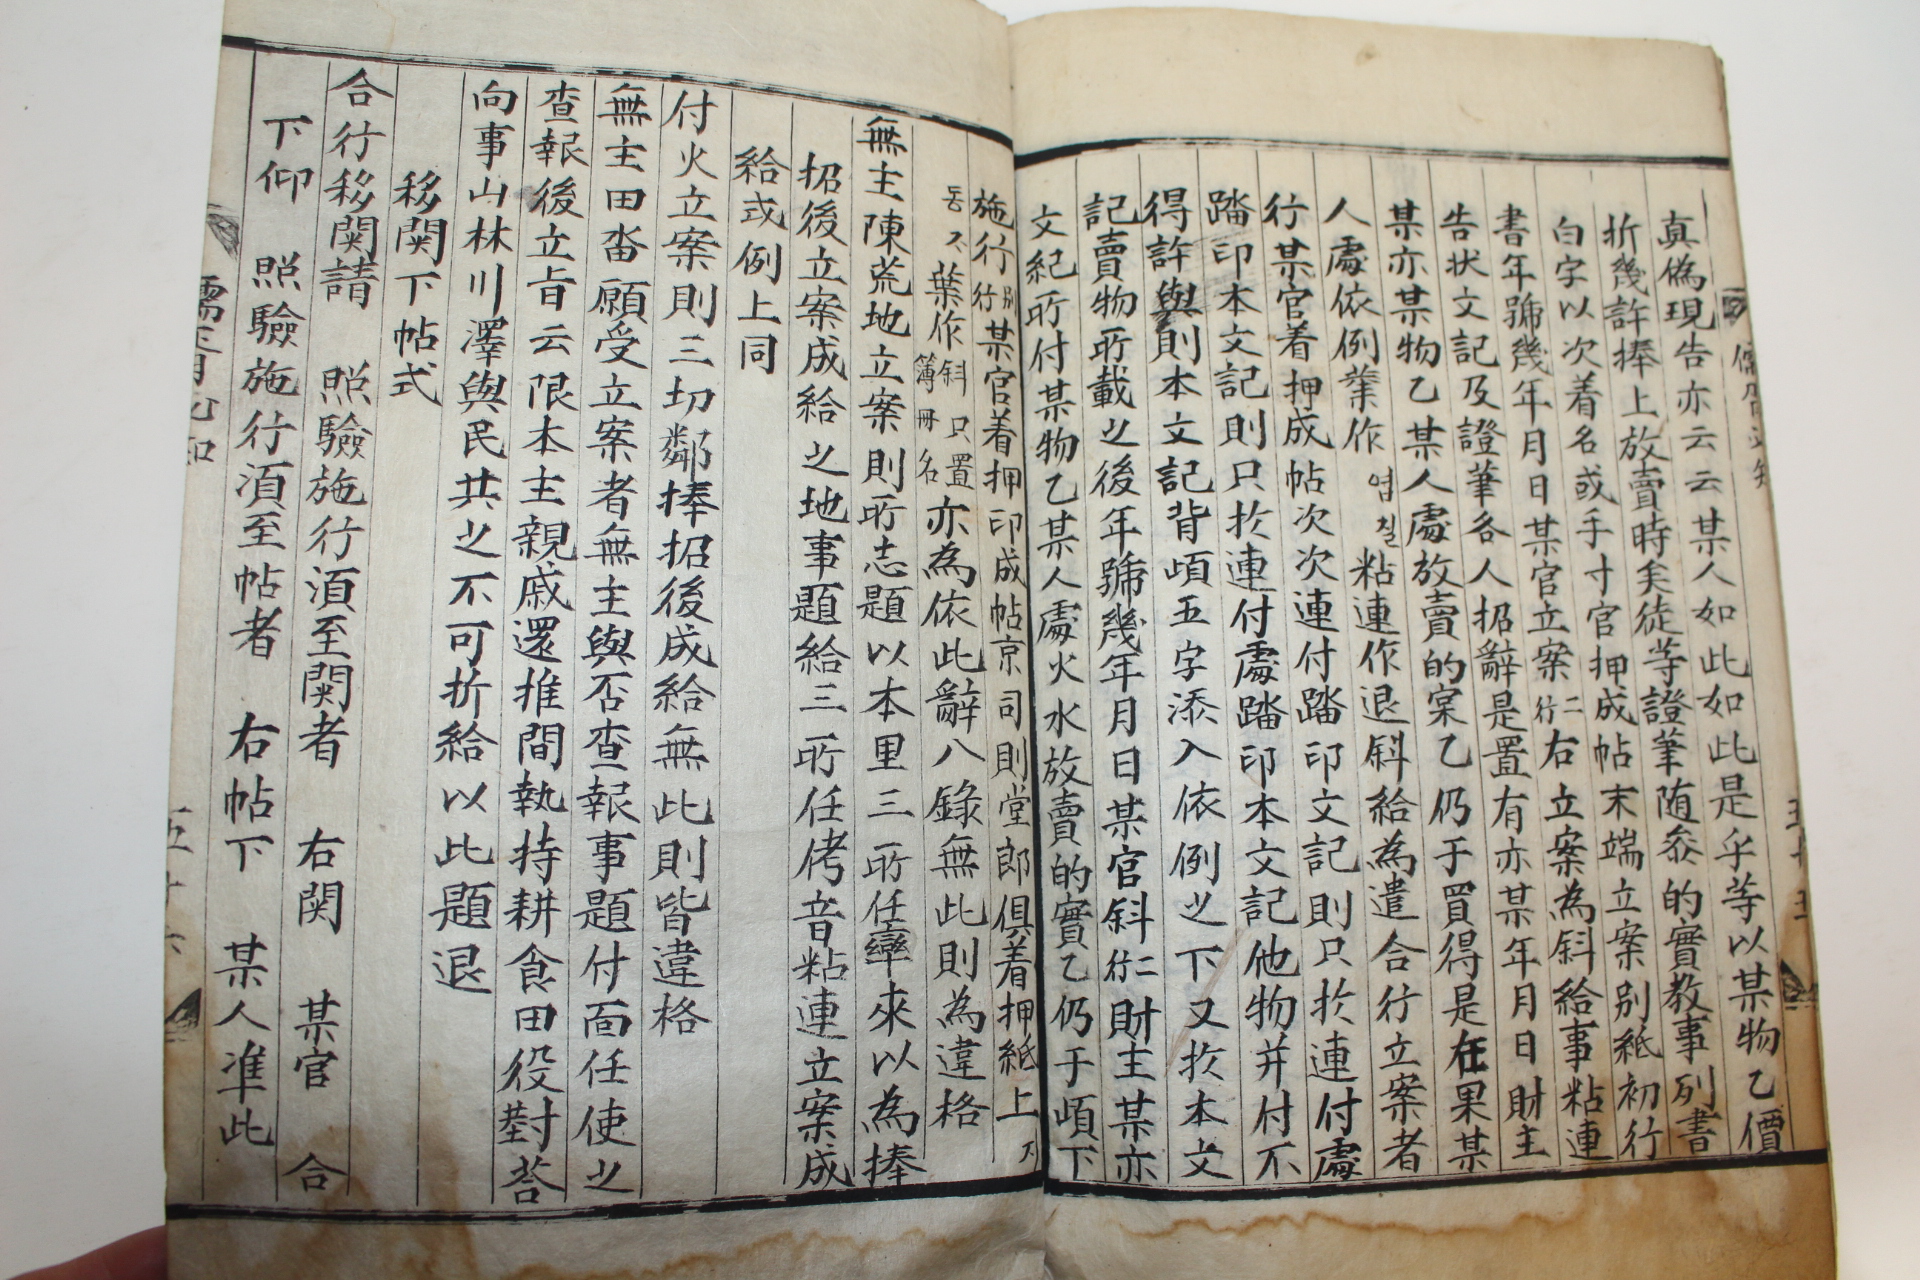 眞偽現告亦云云某人如此如此是乎等以某物乙價
折幾許捧上放賣時矣徒等證筆随叅的實敎事列書
白字以次着名或手寸官押成帖末端立案别紙初行
書年號幾年月日某官立案行二右立案為斜給事粘連
告狀文記及證筆各人招辭是置有亦某年月日財主
某亦某物乙某人處放賣的寔乙仍于買得是在果某
人處依例業作 여질 粘連作退斜給為遣合行立案者
行某官着押成帖次次連付踏印文記則只扵連付處
踏印本文記則只扵連付處踏印本文記他物并付不
得許與則本文記背頉五字添入依例之下又扵本文
記賣物所載之後年號幾年月日某官斜行二財主某亦
文紀所付某物乙某人處火水放賣的實乙仍于頉下
施行别行某官着押印成帖京司則堂郎俱着押紙上下
동不葉作斜只置簿冊名亦為依此辭八錄無此則為違格
無主陳荒地立案則所志題以本里三所任來以為捧
招後立案成給之地事題給三所任侤音粘連立案成
給或例上同
付火立案則三切鄰捧招後成給無此則皆違格
無主田畓願受立案者無主與否查報事題付面任使之
查報後立旨云限本主親戚還推間執持耕食田役對荅
向事山林川澤與民共之不可折給以此題退
移関下帖式
合行移関請 照驗施行湏至関者 右関 某官 合
下仰 照驗施行湏至帖者 右帖下 某人准此
儒胥必知
五十六